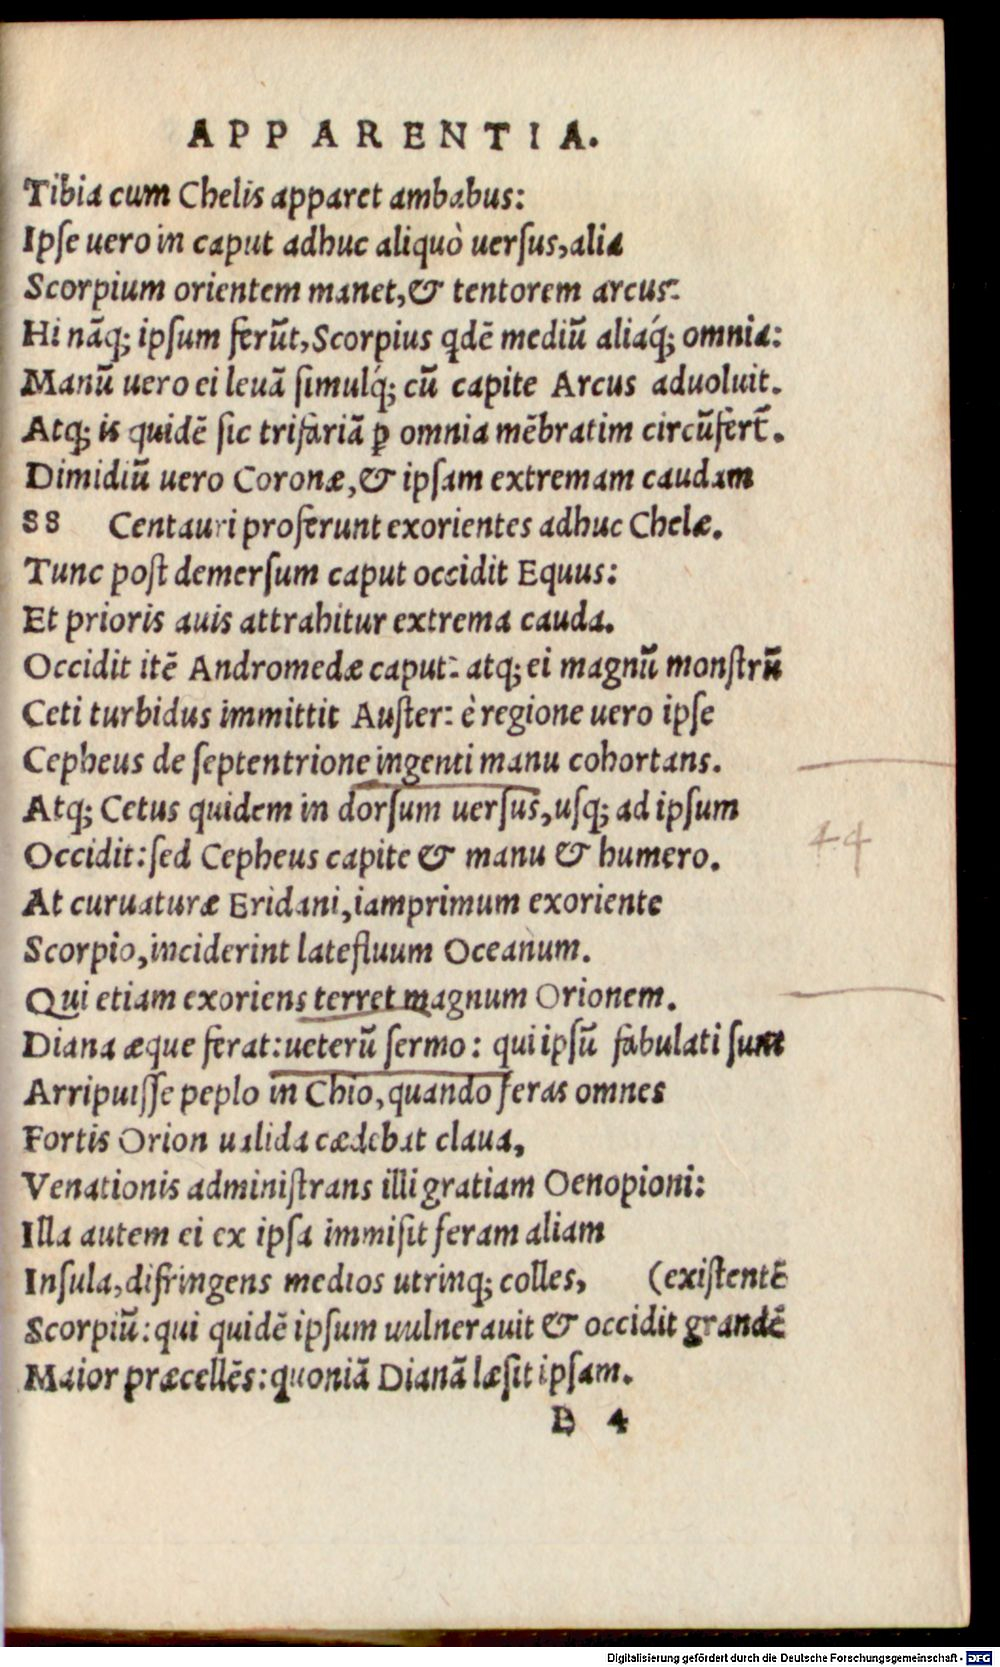 APPARENTIA.
Tibia cum Chelis apparet ambabus:
Ipſe uero in caput adhuc aliquò uerſus, alia
Scorpium orientem manet, & tentorem arcus:
Hi nāq; ipſum ferūt, Scorpius qdē mediū aliaq́; omnia:
Manū uero ei leuā ſimulq́; cū capite Arcus aduoluit.
Atq; is quidē ſic trifariā ꝑ omnia mēbratim circūfert̄.
Dimidiū uero Coronæ, & ipſam extremam caudam
88 Centauri proferunt exorientes adhuc Chelæ.
Tunc poſt demerſum caput occidit Equus:
Et prioris auis attrahitur extrema cauda.
Occidit itē Andromedæ caput: atq; ei magnū monſtrū
Ceti turbidus immittit Auſter: è regione uero ipſe
Cepheus de ſeptentrione ingenti manu cohortans.
Atq; Cetus quidem in dorſum uerſus, uſq; ad ipſum
44
Occidit: ſed Cepheus capite & manu & humero.
At curuaturæ Eridani, iamprimum exoriente
Scorpio, inciderint latefluum Oceanum.
Qui etiam exoriens terret magnum Orionem.
Diana æque ferat: ueterū ſermo: qui ipſū fabulati ſunt
Arripuiſſe peplo in Chio, quando feras omnes
Fortis Orion ualida cædebat claua,
Venationis adminiſtrans illi gratiam Oenopioni:
Illa autem ei ex ipſa immiſit feram aliam
Inſula, difringens medios utrinq; colles, (exiſtentē
Scorpiū: qui quidē ipſum uulnerauit & occidit grandē
Maior præcellēs: quoniā Dianā læſit ipſam.
B 4
Digitalisierung gefördert durch die Deutsche Forschungsgemeinschaft - DFG